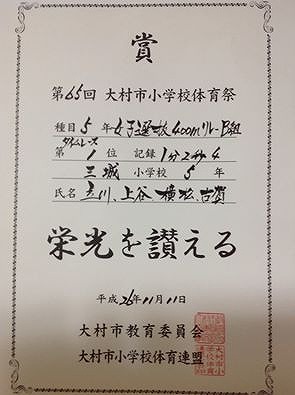 賞
第65回 大村市小学校体育祭
種目 5年女子選抜400mリレーB組
タイムレース
第1位 記録 1分2秒4
三城 小学校 5年
氏名 立川、上谷 横松、古賀
栄光を讃える
平成26年11月11日
大村市教育委員会
大村市小学校体育連盟